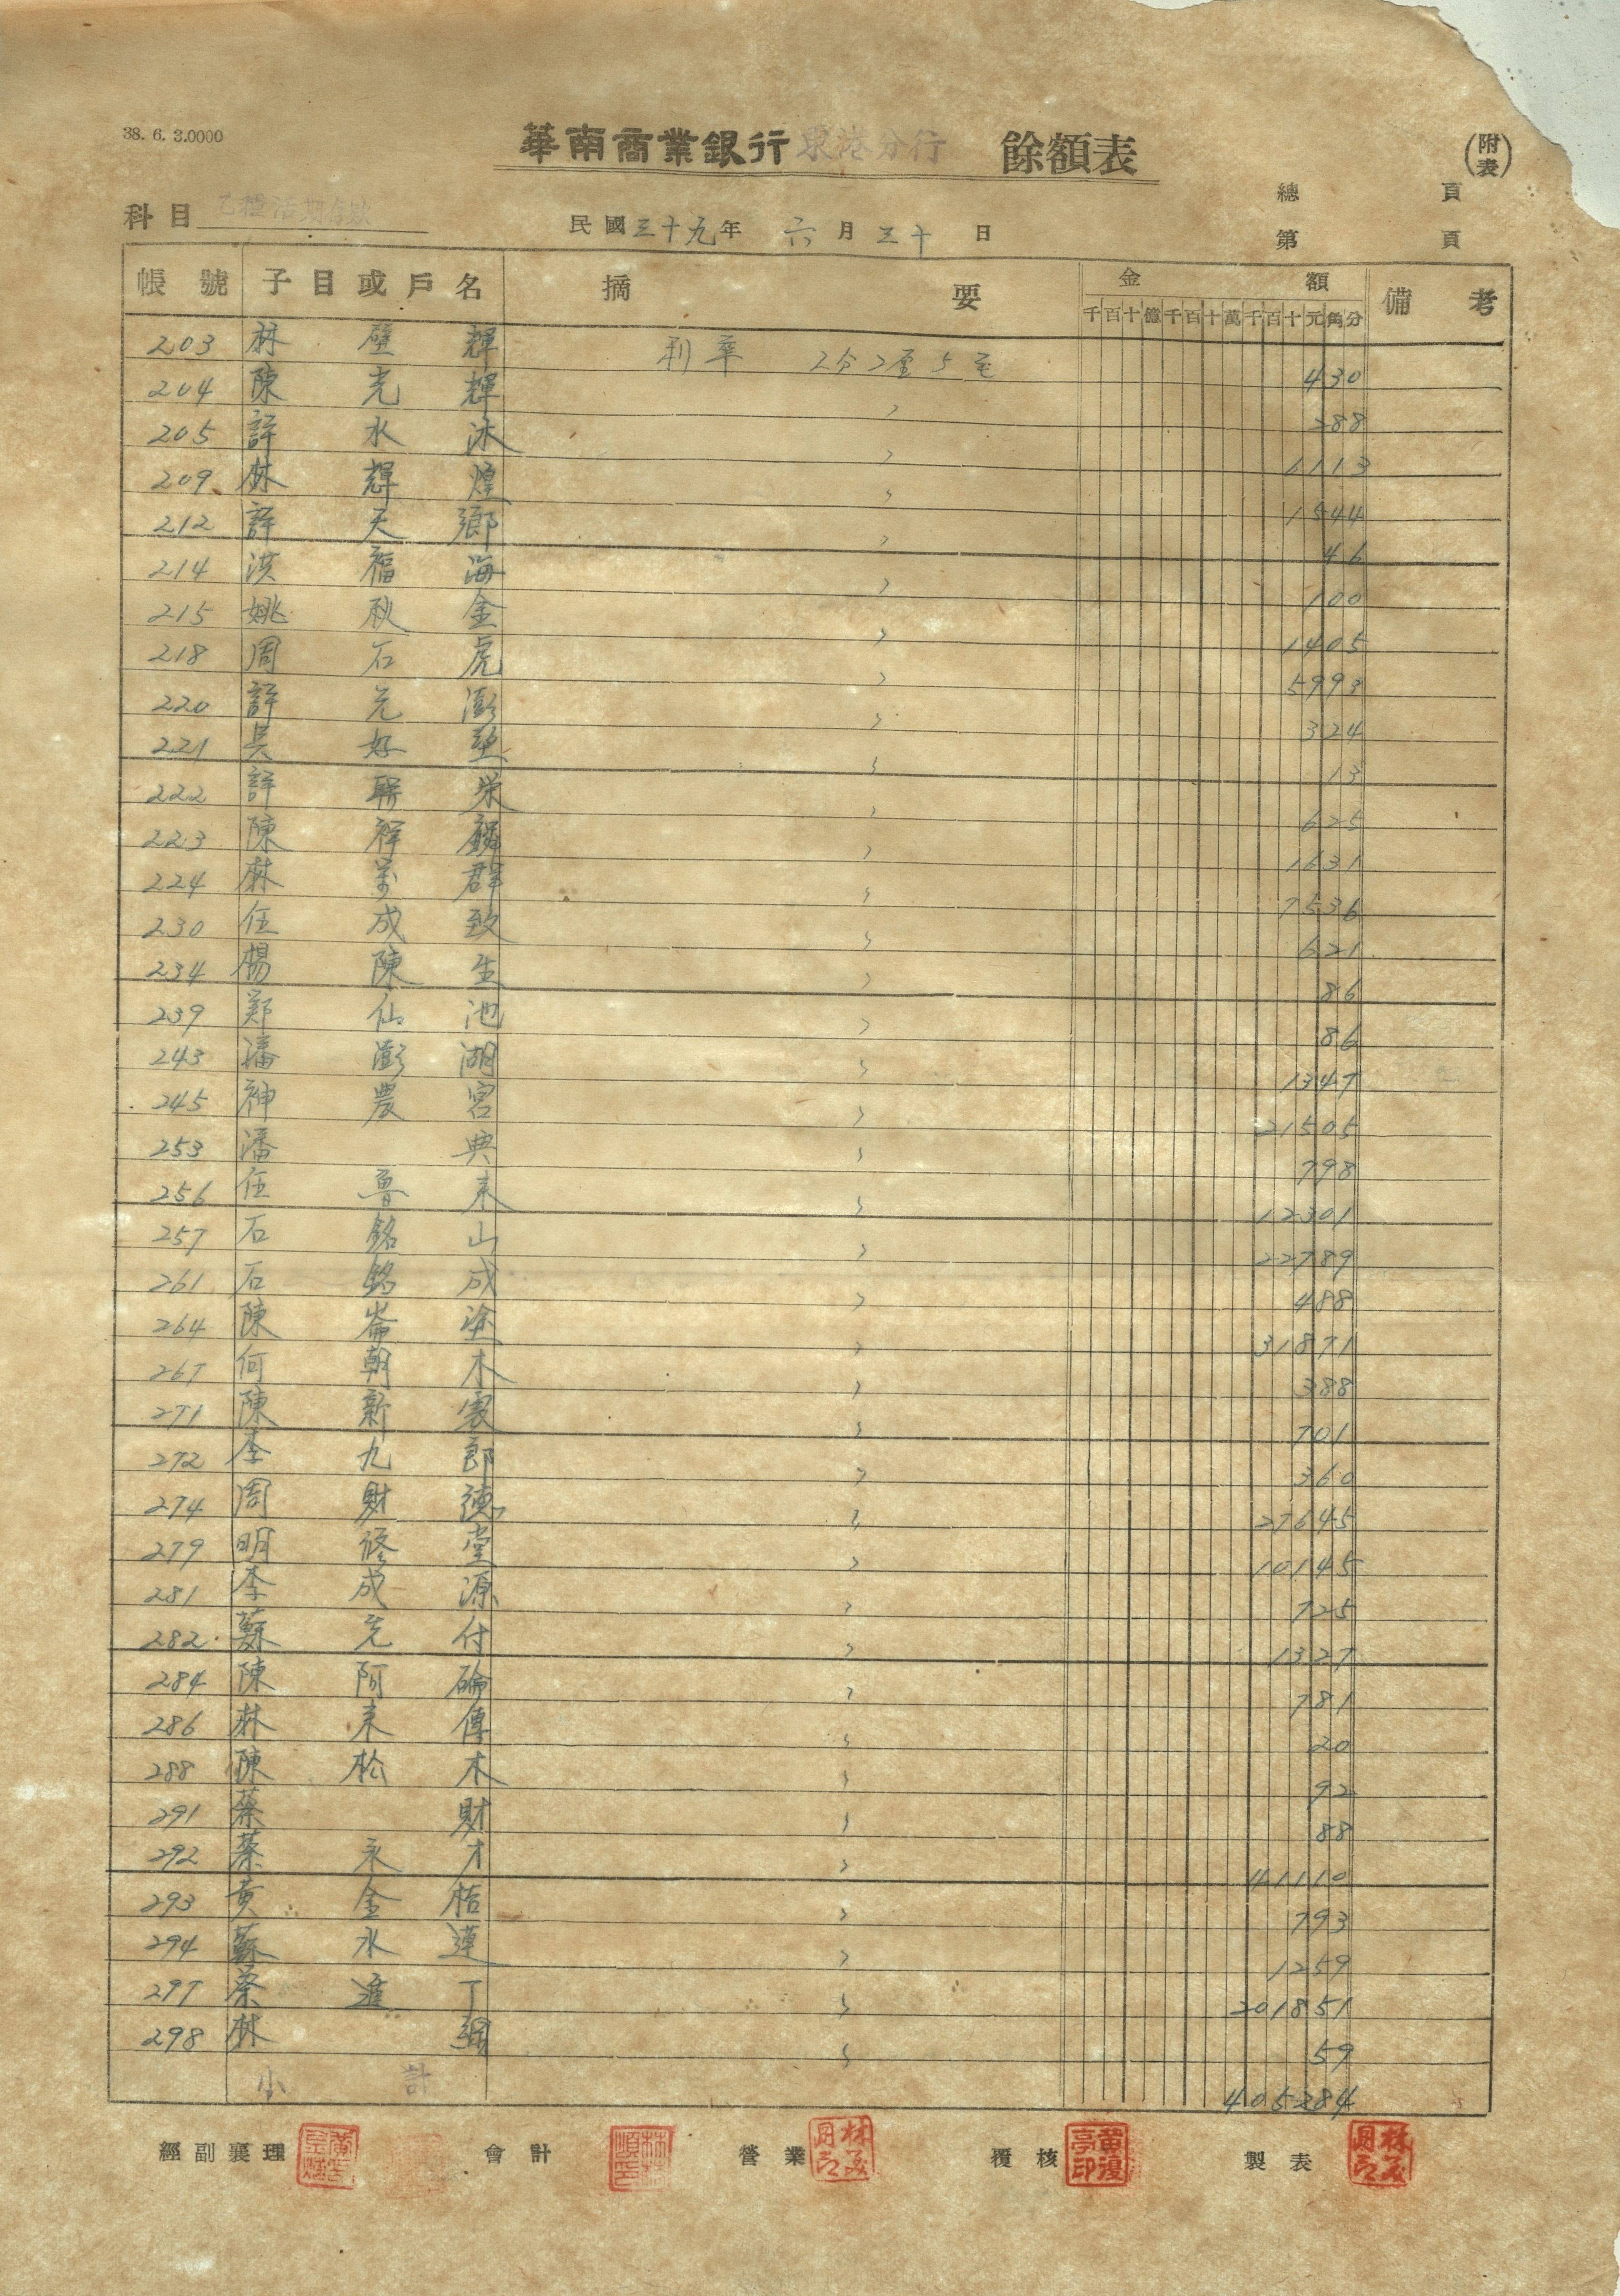 38. 6. 3.0000
華南商業銀行東港分行 餘額表
(附表)
總 頁
科目 乙種活期存款
民國三十九年 六月三十日
第 頁
帳號 子目或戶名 摘要 金額 備考
千百十億千百十萬千百十元角分
203 林壁輝 利率 2分2厘5毛 430
204 陳光輝 〃 288
205 許水沐 〃 6113
209 林輝煌 〃 1544
212 許天鄉 〃 46
214 洪福海 〃 100
215 姚秋金 〃 1405
218 周石虎 〃 5993
220 許先澎 〃 324
221 吳好 〃 13
222 許联栄 〃 625
223 陳祥麟 〃 1631
224 林萬群 〃 7536
230 伍成致 〃 621
234 楊陳生 〃 86
239 郑仙池 〃 86
243 潘澎湖 〃 1347
245 神農宮 〃 21505
253 潘典 〃 798
256 伍魯来 〃 12301
257 石銘山 〃 22789
261 石銘成 〃 488
264 陳崙塗 〃 31871
267 何朝木 〃 388
271 陳新 〃 701
272 李九郎 〃 360
274 周財德 〃 27645
279 明修堂 〃 10145
281 李成源 〃 725
282 蘇先付 〃 1327
284 陳阿碖 〃 781
286 林来傳 〃 20
288 陳松木 〃 92
291 蔡財 〃 88
292 蔡永才 〃 41110
293 黄金桔 〃 793
294 蘇水蓮 〃 1259
297 蔡進丁 〃 201851
298 林 〃 59
小計 405284
經副襄理 會計 營業 覆核 製表